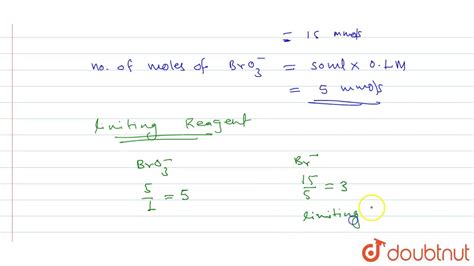 = 15 mmols
no. of moles of BrO₃⁻ = 50 ml x 0.1M
= 5 mmols
limiting Reagent
BrO₃⁻ Br⁻
5/1 = 5 15/5 = 3
limiting
doubtnut